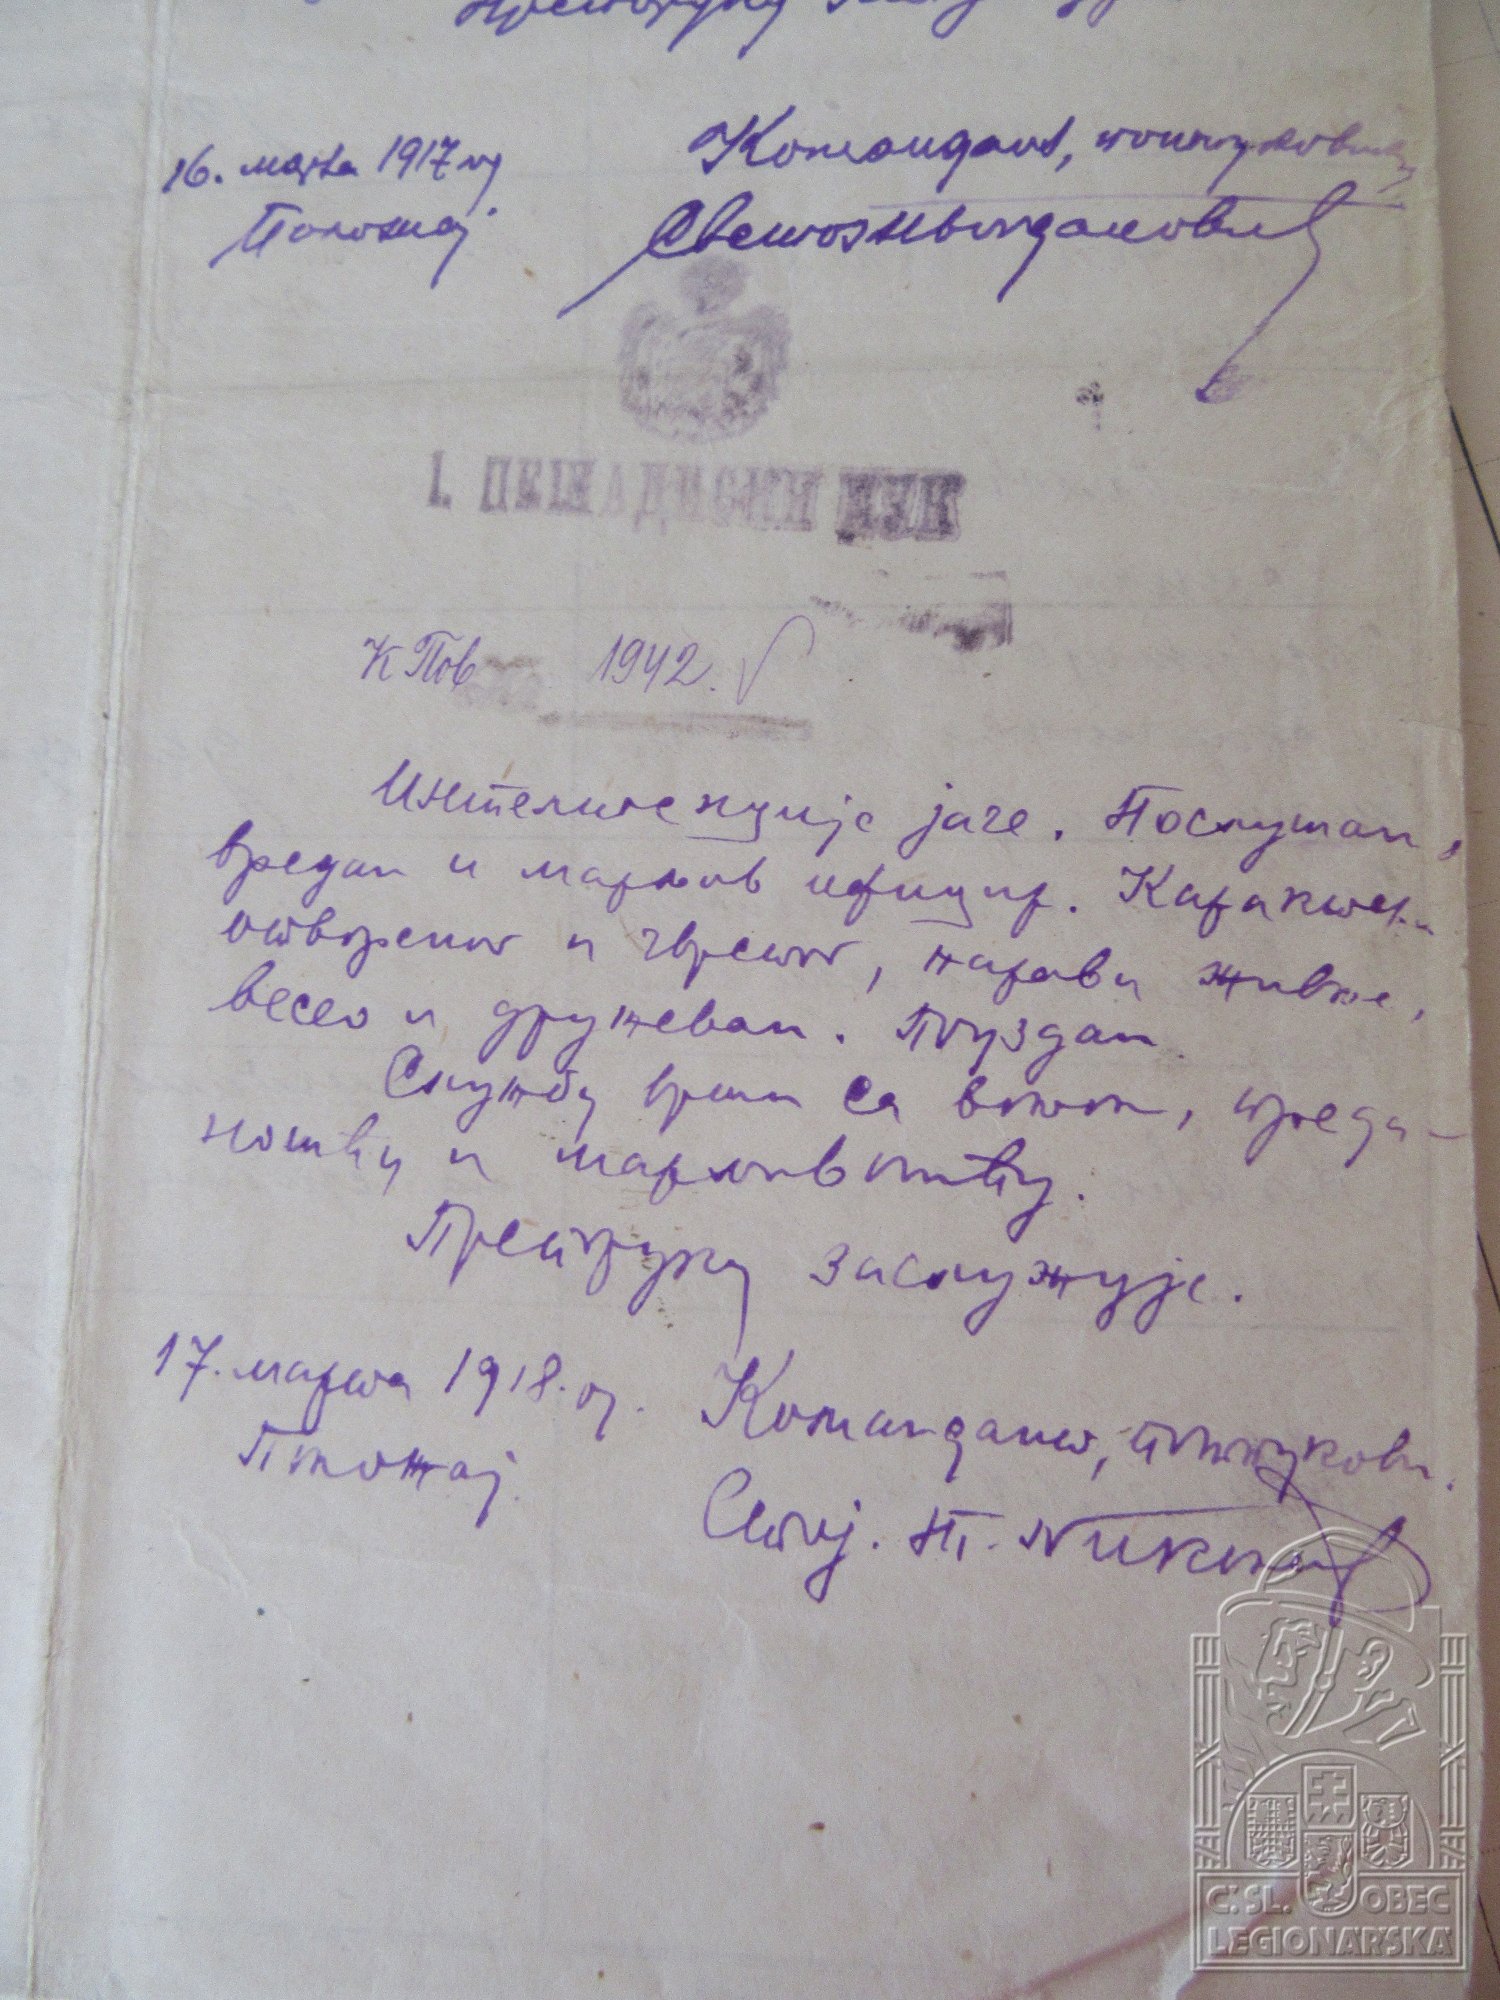 16. марта 1917 год
Командант, потпуковник
Положај
I. ПЕШАДИСКИ ПУК
К Пов 1942.
Интелигенције јаче. Послушан,
вредан и марљив официр. Карактера
отвореног и чврстог, нарави живе,
весео и дружеван. Поуздан.
Службу врши са вољом, преда-
ношћу и марљивошћу.
Препоруку заслужује.
17. марта 1918. г.
Командант, потпуков.
Положај.
Стој. П.
Č. SL. OBEC
LEGIONÁŘSKÁ